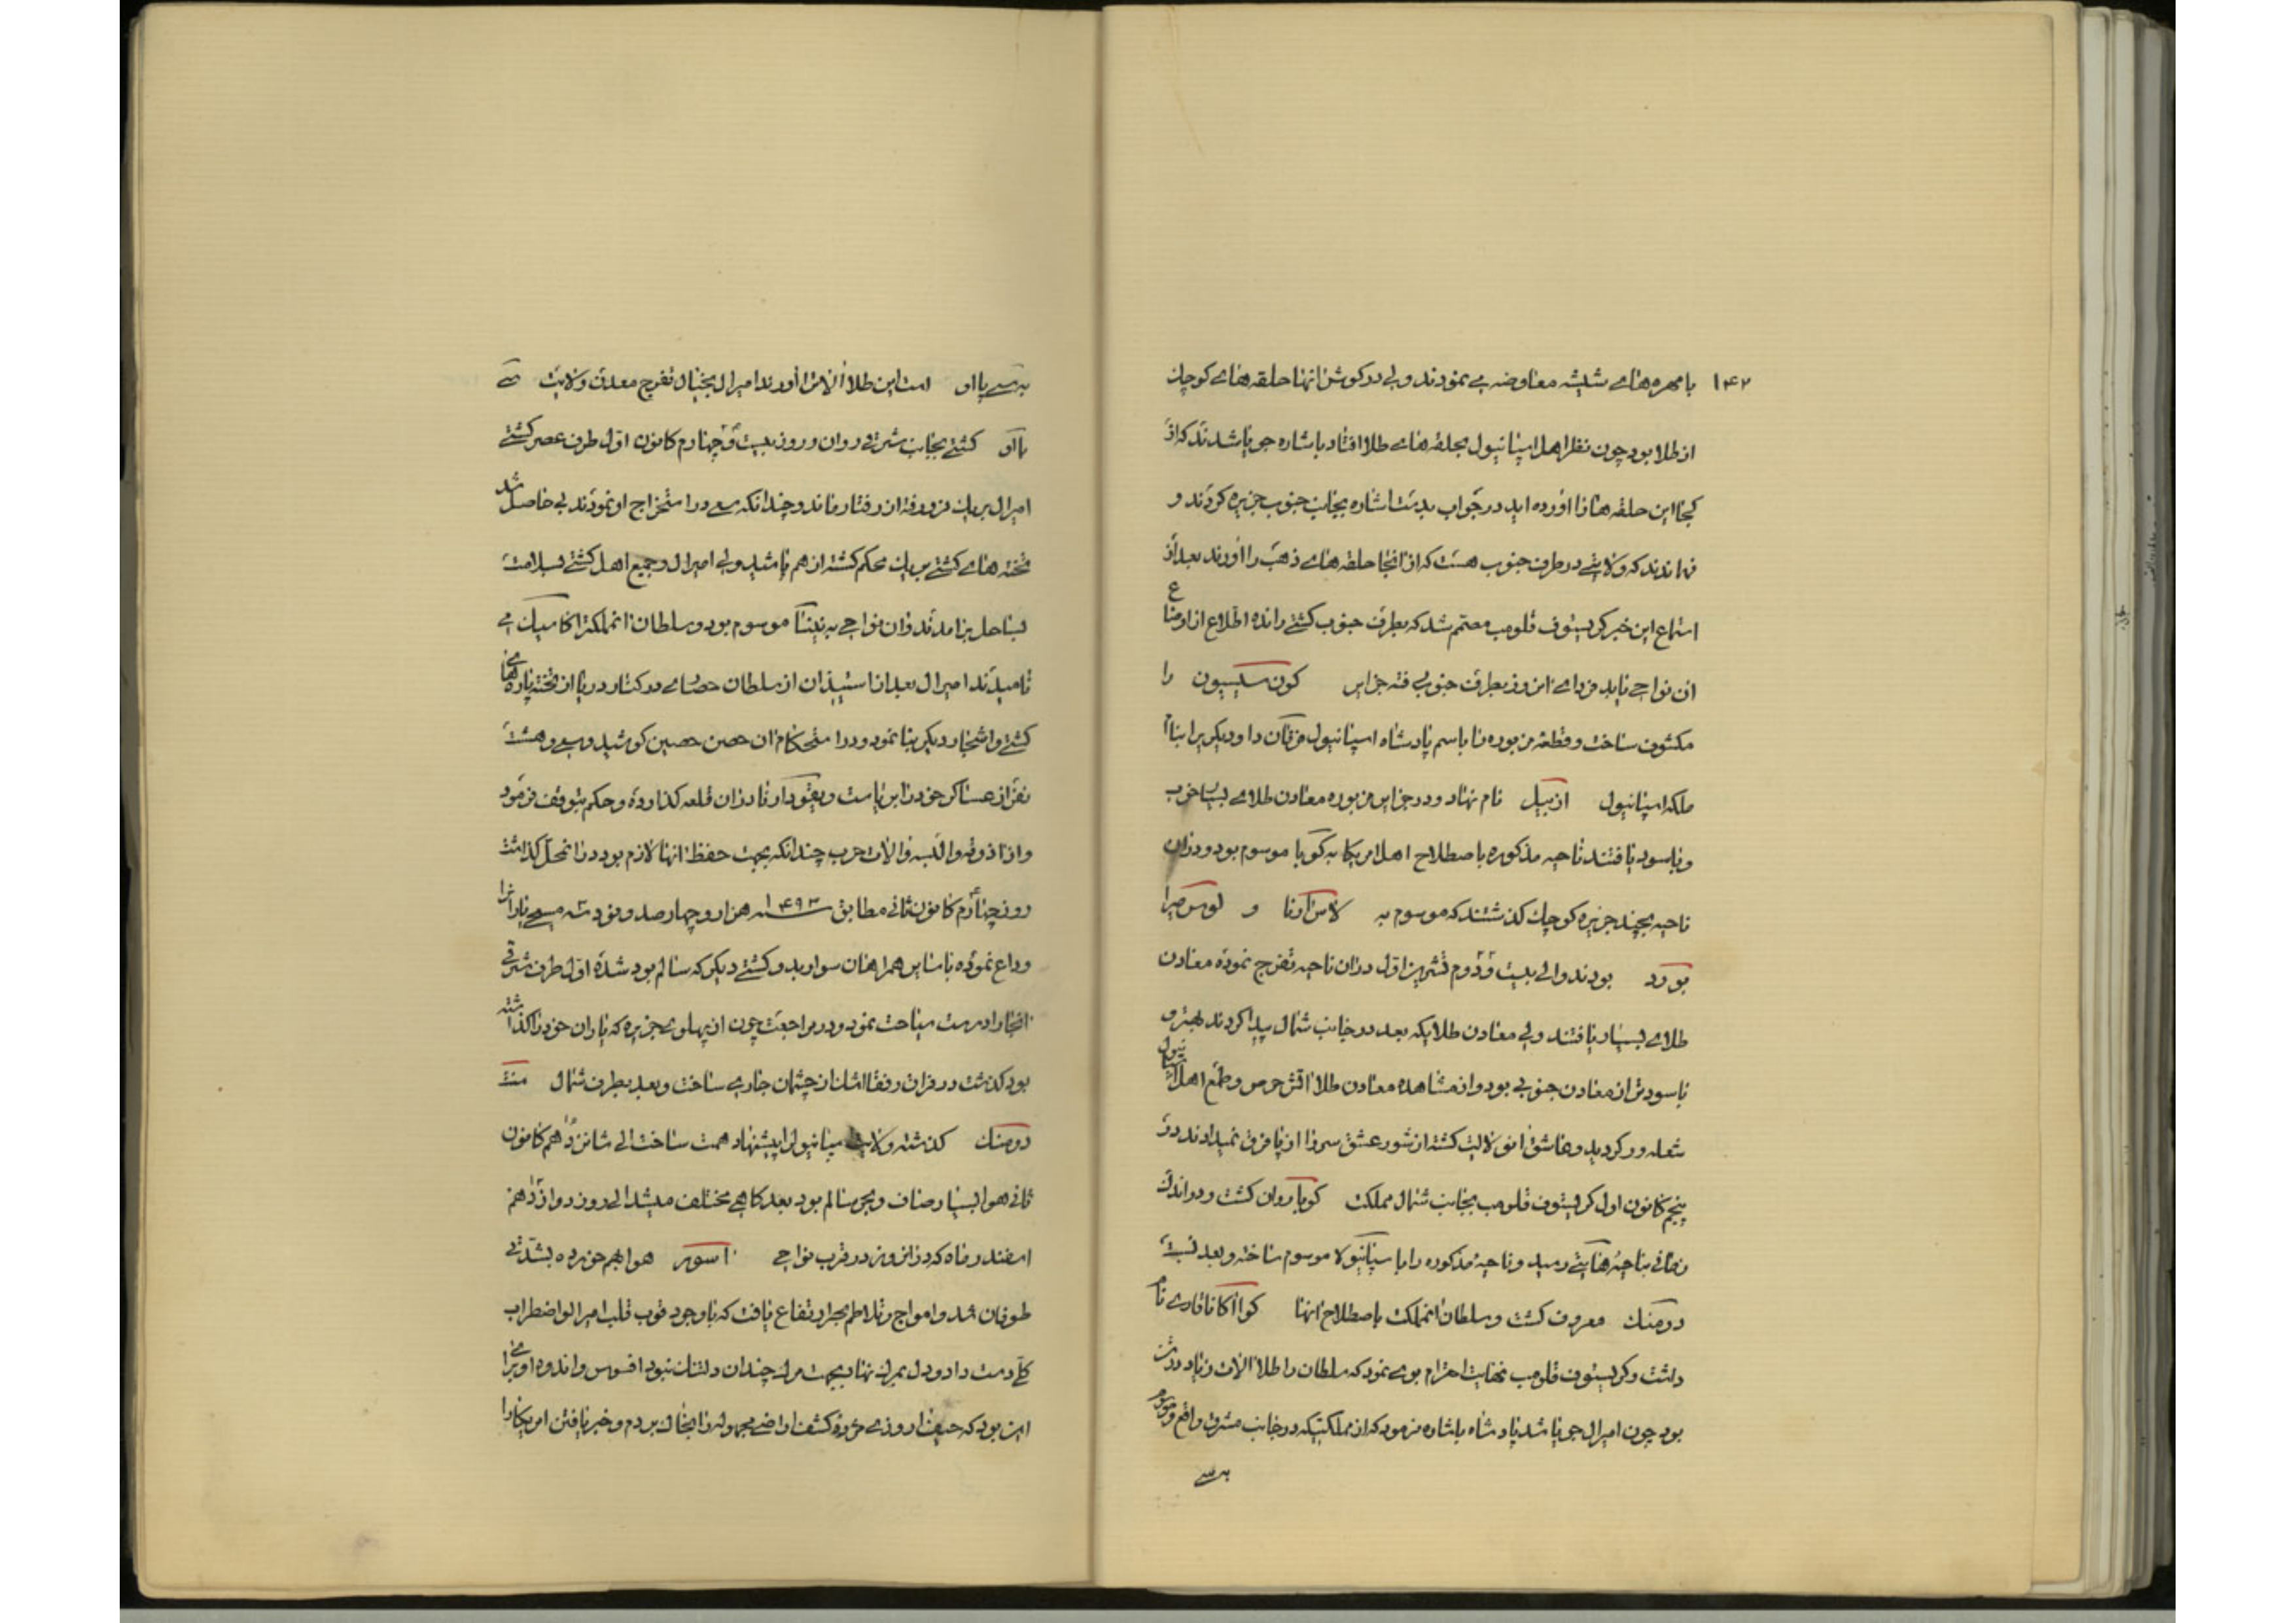 ۱۴۲
با مهره هاے شیشه معاوضه مے نمودند ولے در کوش انها حلقه هاے کوچک
از طلا بود چون نظر اهل اسپانیول بحلقه هاے طلا افتاد باشاره جویا شدند که از
کجا این حلقه ها را اورده اید در جواب بدست اشاره بجانب جنوب جزیره کردند و
فهماندند که ولایتے در طرف جنوب هست که از انجا حلقه هاے ذهب را اورند بعد از
استماع این خبر کریستوف قلومب مصمم شد که بطرف جنوب کشتے رانده اطلاع از اوضاع
ان نواحے یابد فرداے انروز بطرف جنوب رفته جزایر کون سیسیون را
مکشوف ساخت و قطعه مزبوره را باسم پادشاه اسپانیول و دیکریرا بنام
ملکه اسپانیول ازبیل نام نهاد و در جزایر مزبوره معادن طلاے بسیار خوب
و باسود یافتند ناحیه مذکوره باصطلاح اهل امریکا به کوبا موسوم بود و دران
ناحیه بچند جزیره کوچک کذشتند که موسوم به لاس ارنا و لوس میرا
بودند و الے بیست و دوم تشرین اول دران ناحیه تفرج نموده معادن
طلاے بسیار یافتند ولے معادن طلائیکه بعد در جانب شمال پیدا کردند بهتر و
باسودتر از معادن جنوبے بود و از مشاهده معادن طلا اتش حرص و طمع اهل اسپانیول
شعله ور کردید و کشته از شور عشق سر را از پا فرق نمیدادند در
پنجم کانون اول کریستوف قلومب بجانب شمال مملکت کوبا روان کشت و در اندک
زمانے بناحیه هایتے رسید و ناحیه مذکوره را با سپانیولا موسوم ساخته و بعد
دومنک معروف کشت و سلطان انمملکت باصطلاح انها کوااکاناقارے نام
داشت و کریستوف قلومب نهایت احترام بوے نمود که سلطان را طلا الات زیاد در دست
بود چون امیرال جویا شد پادشاه باشاره فرمود که از مملکتیکه در جانب مشرق واقع و موسوم
به سے
به سے پااو است این طلا الات را اورند امیرال بخیال تفرج معدن ولایت سے
پااو کشتے بجانب شرقے روان و روز بیست و چهارم کانون اول طرف عصر کشتے
امیرال بریک فرو رفته از رفتار ماند و چندانکه سعے در استخراج او نمودند بے حاصل شد
تخته هاے کشتے بریک محکم کشته از هم پاشید ولے امیرال و جمیع اهل کشتے بسلامت
بساحل برامدند و ان نواحے به موسوم بود و سلطان انمملکترا کاسیک مے
نامیدند امیرال بعد از استیذان از سلطان حصارے در کنار دریا از تخته پاره هاے
کشتے و اشجار دیکر بنا نمود و در استحکام ان حصن حصین کوشید و سے و هشت
نفر از عساکر خود را بریاست دران قلعه کذارده و حکم بتوقف فرمود
و از اذوقه و البسه و الات حرب چندانکه بجهت حفظ انها لازم بود در انمحل کذاشت
روز چهارم کانون ثانے مطابق سنه ۱۴۹۳ هزار و چهار صد و نود سه مسیحے یاران را
وداع نموده با سایر همراهان سوار بدو کشتے دیکر که سالم بود شده اول طرف شرقے
انجا را درست سیاحت نمود و در مراجعت چون از پهلوے جزیره که یاران خود را کذاشته
بود کذشت در فراق رفقا اشک از چشمان جارے ساخت و بعد بطرف شمال سنت
دومنک کذشته ولایت اسپانیول را پیشنهاد همت ساخت الے شانزدهم کانون
ثانے هوا بسیار صاف و بحر سالم بود بعد کاهے مختلف میشد الے روز دوازدهم
اسفندار ماه که در انروز در قرب نواحے اسور هوا بهم خورده بشدتے
طوفان شد و امواج و تلاطم بحر ارتفاع یافت که باوجود قوت قلب امیرال واضطراب
کلے دست داد و دل بمرک نهاد بجهت مرک چندان دلتنک نبود افسوس و اندوه او براے
این بود که حیف روزے مژده کشف اراضے مجهوله را بخاک بردم و خبر یافتن امریکا را